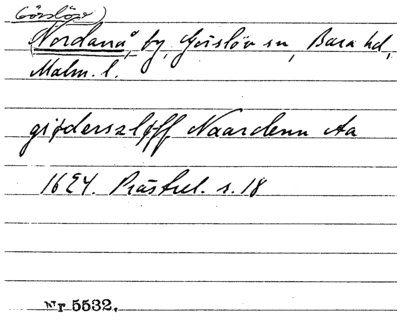 (Görslöv)
Nordanå, by, Görslöv sn, Bara hd,
Malm. l.
giøderszløff Naardenn Aa
1624. Prästrel. s. 18
Nr 5532.